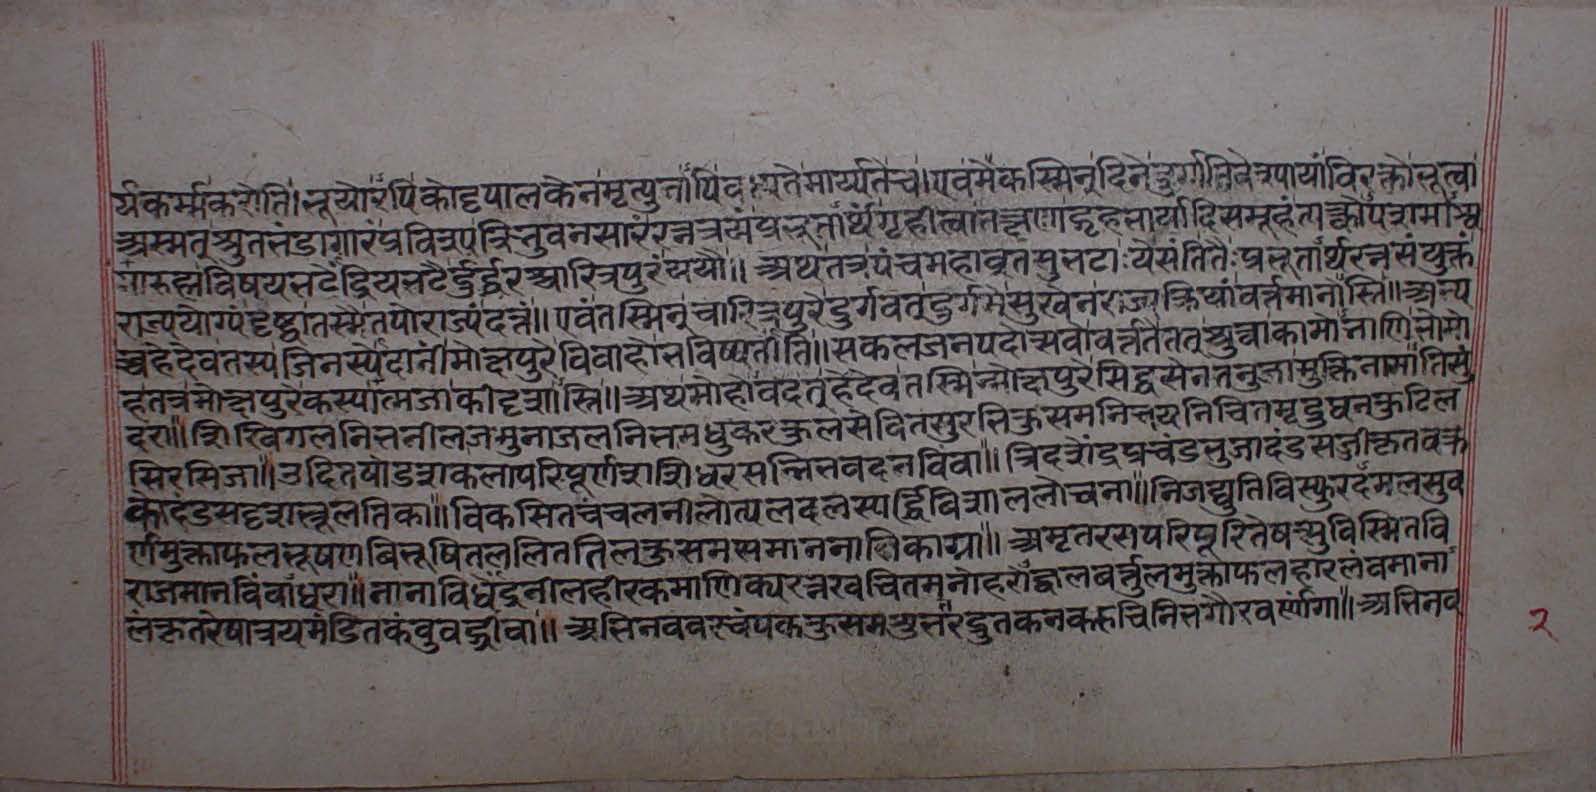 र्यकर्म्मकरोति। भूयोरपिकोदृपालकेनमृत्युनापिव ध्यतेमार्य्यतेच। एवमेकस्मिन्दिने दुर्गतिवेत्रपायांविरक्तोभूत्वा
अस्मत्श्रुतभंडागारंप्रविश्य त्रिभुवनसारंरत्नत्रयंप्रभूतार्थंगृहीत्वातत्क्षणाद्गृहभार्यादिसमूहंत्यक्त्वोपशमाश्व
मारुह्यविषयभटेंद्रियभटैर्दुर्द्धरचारित्रपुरंययौ॥ अथतत्रपंचमहाव्रतसुभटाः येसंतितैः प्रभूतार्थरत्नसंयुक्तं
राज्ययोग्यंदृष्ट्वातस्मैतपोराज्यंदत्तं॥ एवंतस्मिन्चारित्रपुरेदुर्गवत्दुर्गमेसुखेनराज्यक्रियां वर्त्तमानोस्ति॥ अन्य
च्चहेदेवतस्यजिनस्येदानींमोक्षपुरेविवाहोभविष्यतीति॥ सकलजनपदोत्सवोवर्त्ततेतत्श्रुत्वाकामोभाणिभोमो
हतत्रमोक्षपुरेकस्यात्मजाकीदृशास्ति॥ अथमोहोवदत्हेदेवतस्मिन्मोक्षपुरेसिद्धसेनतनुजामुक्तिनामातिसुं
दरा॥ शिखिगलनिभनीलजमुनाजलनिभमधुकरकुलसेवितसुरभिकुसमनिचयनिचितमृदुघनकुटिल
सिरसिजा॥ उदितषोडशकलापरिपूर्णशशिधरसन्निभवदनबिंबा॥ त्रिदशेंद्रप्रचंडभुजादंडसज्जीकृतवक्र
कोदंडसदृशभ्रूलतिका॥ विकसितचंचलनीलोत्पलदलस्पर्द्धिविशाललोचना॥ निजद्युतिविस्फुरदमलसुव
र्णमुक्ताफलभूषणबिभूषितललिततिलकुसमसमाननासिकाग्रा॥ अमृतरसपरिपूरितेषत्सुविस्मितवि
राजमानबिंबाधरा॥ नानाविधेंद्रनीलहीरकमाणिक्यरत्नखचितमनोहरोज्ज्वलबर्त्तुलमुक्ताफलहारलंबमाना
लंकृतरेषात्रयमंडितकंबुवद्ग्रीवा॥ अभिनववरचंपककुसमशुभ्रतरद्रुतकनकरुचिनिभगौरवर्णांगा॥ अभिनव
२